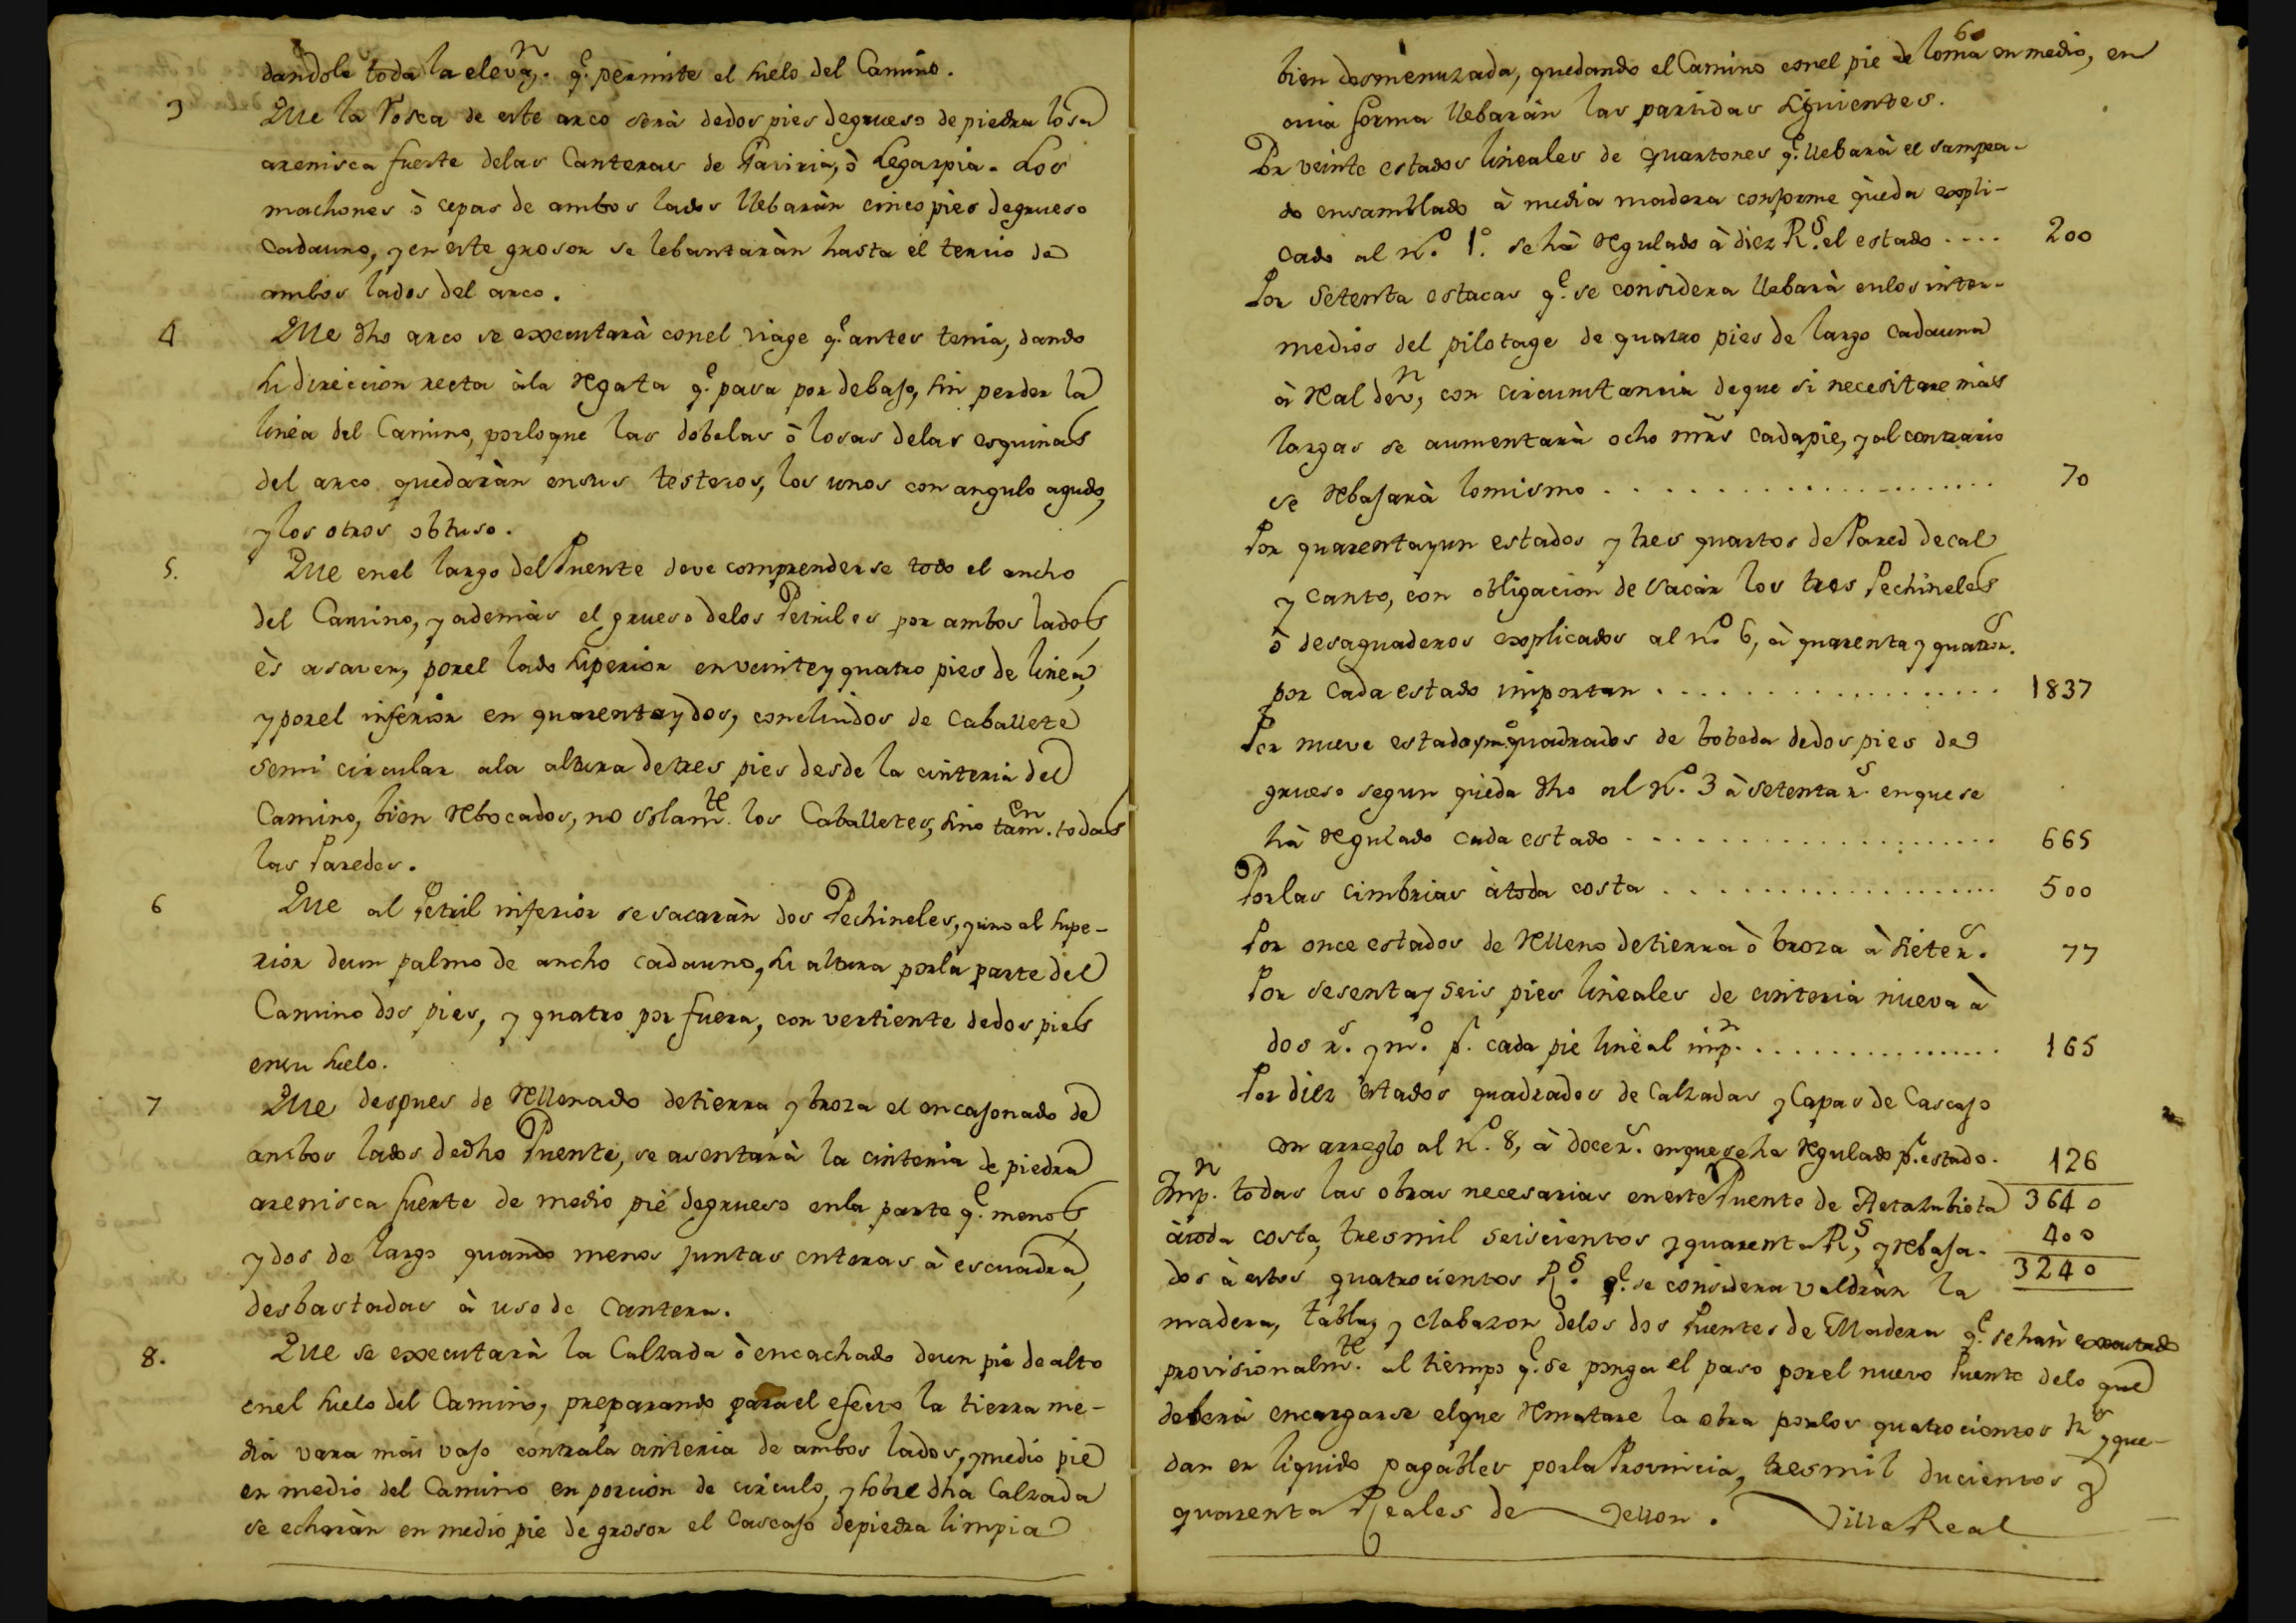 dandole toda la elevaⁿ. q.ᵉ permite el suelo del Camino.
3 Que la Rosca de este arco serà dedos pies degrueso de piedra losa
arenisca fuerte delas Canteras de Gaviria, ò Legazpia. Los
machones ò cepas de ambos lados llebaràn cinco pies degrueso
cadauno, y en este grosor se lebantaràn hasta el tercio de
ambos lados del arco.
4 Que dho arco se executarà conel viage q.ᵉ antes tenia, dando
su direccion recta àla regata q.ᵉ pasa por debajo, sin perder la
linea del Camino, porloque las dobelas ò losas delas esquinas
del arco quedaràn ensus testeros, los unos con angulo agudo,
y los otros obtuso.
5. Que enel largo del Puente deve comprenderse todo el ancho
del Camino, y ademàs el grueso delos Petriles por ambos lados,
ès asaver, porel lado superior enveinte y quatro pies de linea,
y porel inferior en quarenta y dos, concluidos de caballete
semi circular ala altura detres pies desde la cinteria del
Camino, bien rebocados, no solam.ᵗᵉ los Caballetes, sino tam.ᵉⁿ todas
las Paredes.
6 Que al Petril inferior se sacaràn dos Pechineles, y uno al supe-
rior deun palmo de ancho cadauno, su altura porla parte del
Camino dos pies, y quatro por fuera, con vertiente dedos pies
ensu suelo.
7 Que despues de rellenado detierra y broza el encajonado de
ambos lados dedho Puente, se asentarà la cinteria de piedra
arenisca fuerte de medio pie degrueso enla parte q.ᵉ menos,
y dos de largo quando menos juntas enteras à escuadra,
desbastadas à uso de Cantera.
8. Que se executarà la Calzada ò encachado deun pie de alto
enel suelo del Camino, preparando parael efecto la tierra me-
dia vara màs vajo contrala cinteria de ambos lados, y medio pie
en medio del Camino en porcion de circulo, y sobre dha Calzada
se echaràn en medio pie de grosor el Cascajo depiedra limpia
6
bien desmenuzada, quedando el Camino conel pie de loma en medio, en
cuia forma llebaràn las partidas siguientes.
Por veinte estados lineales de quartones q.ᵉ llebarà el sampea-
do ensamblado à media madera conforme queda expli-
cado al N.º 1.º se hà regulado à diez R.ˢ el estado .... 200
Por Setenta estacas q.ᵉ se considera llebarà enlos inter-
medios del pilotage de quatro pies de largo cadauna
à real devⁿ, con circunstancia deque si necesitare màs
largas se aumentarà ocho mrs cadapie, y al contrario
se rebajarà lomismo ..................... 70
Por quarentayun estados y tres quartos dePared decal
y Canto, con obligacion de sacar los tres Pechineles
ò desaguaderos explicados al N.º 6, à quarenta y quatro r.ˢ
por cada estado importan ................... 1837
Por nueve estados y m.º quadrados de bobeda dedos pies de
grueso segun queda dho al N.º 3 à setenta r.ˢ enque se
hà regulado cada estado .................... 665
Porlas cimbrias àtoda costa ................... 500
Por once estados de relleno detierra ò broza à siete r.ˢ 77
Por sesenta y seis pies lineales de cinteria nueva à
dos r.ˢ y m.º p.ʳ cada pie lineal imp.ⁿ ................ 165
Por diez estados quadrados de Calzadas y Capas de Cascajo
con arreglo al N.º 8, à doce r.ˢ enquese ha regulado p.ʳ estado. 126
Imp.ⁿ todas las obras necesarias en este Puente de 3640
àtoda costa, tresmil seiscientos y quarenta R.ˢ, y rebaja- 400
dos à estos quatrocientos R.ˢ q.ᵉ se considera valdràn la 3240
madera, tabla, y clabazon delos dos Puentes de Madera q.ᵉ se hàn executado
provisionalm.ᵗᵉ al tiempo q.ᵉ se ponga el paso porel nuevo Puente delo que
deberà encargarse elque rematare la obra porlos quatrocientos R.ˢ y que-
dan en liquido pagables porla Provincia, tresmil ducientos y
quarenta Reales de Vellon. Villa Real